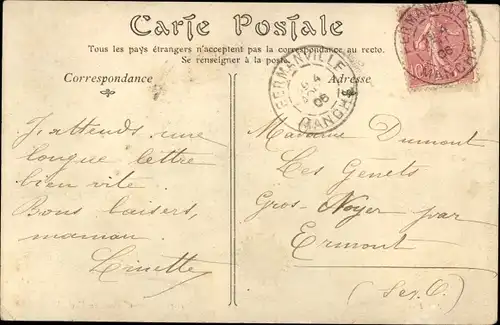 Carte Postale
Tous les pays étrangers n'acceptent pas la correspondance au recto.
Se renseigner à la poste.
Correspondance
Adresse
GERMANVILLE
4
06
MANCHE
GERMANVILLE
06
MANCHE
J'attends une
longue lettre
bien vite.
Bons baisers,
maman.
Linette
Madame Dumont
Les Genêts
Gros-Noyer par
Ermont
(S. et O.)